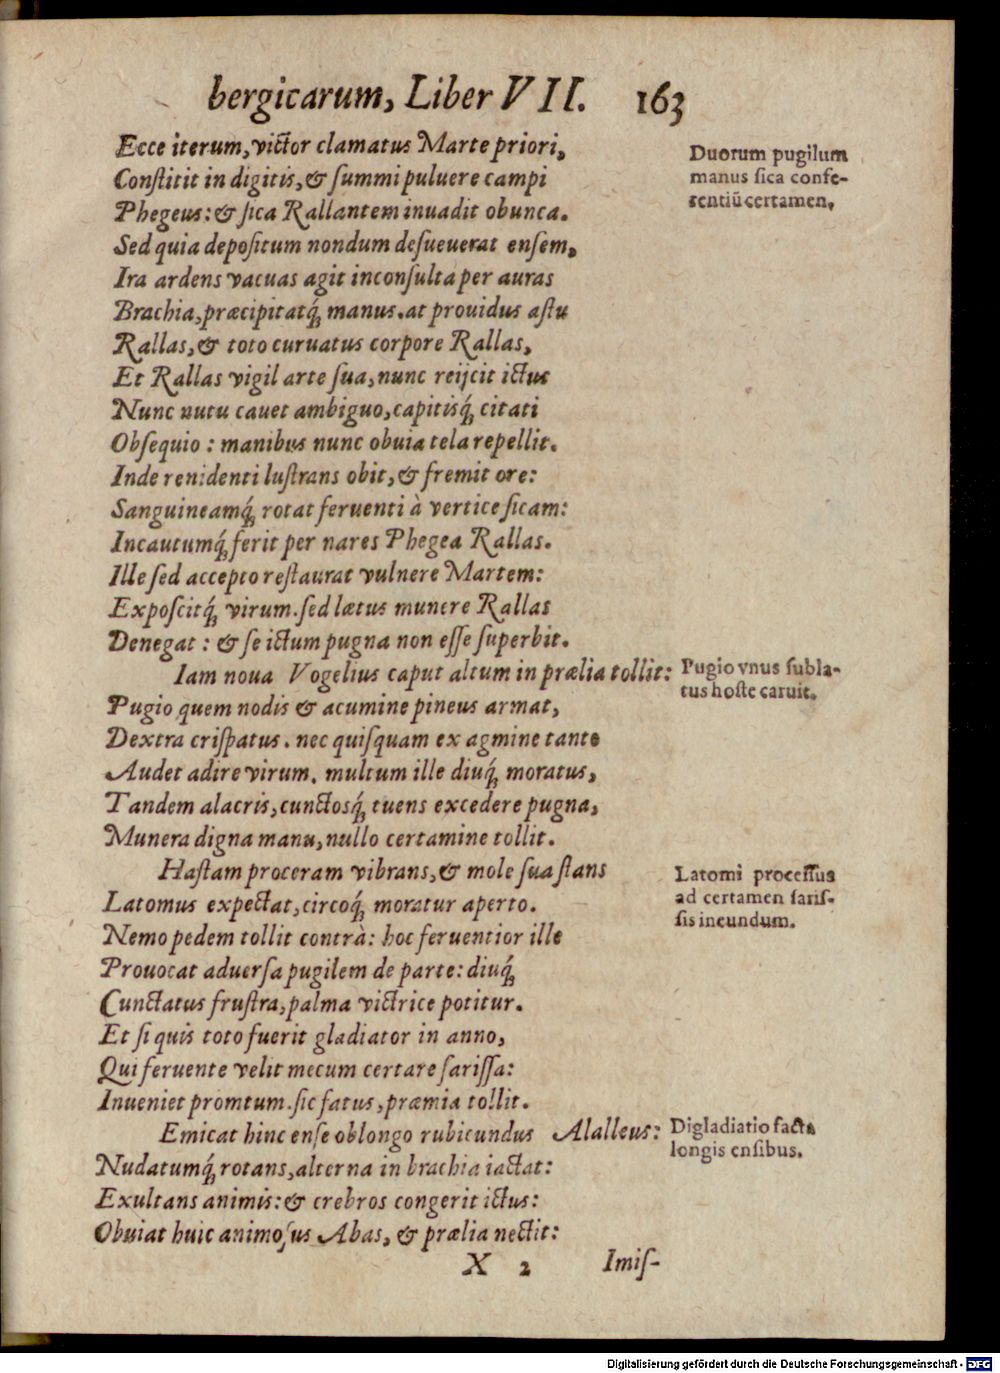 bergicarum, Liber VII. 163
Ecce iterum, victor clamatus Marte priori,
Constitit in digitis, & summi puluere campi
Phegeus: & sica Rallantem inuadit obunca.
Sed quia depositum nondum desueuerat ensem,
Ira ardens vacuas agit inconsulta per auras
Brachia, præcipitatq́; manus. at prouidus astu
Rallas, & toto curuatus corpore Rallas,
Et Rallas vigil arte sua, nunc reijcit ictus
Nunc nutu cauet ambiguo, capitisq́; citati
Obsequio: manibus nunc obuia tela repellit.
Inde renidenti lustrans obit, & fremit ore:
Sanguineamq́; rotat feruenti à vertice sicam:
Incautumq́; ferit per nares Phegea Rallas.
Ille sed accepto restaurat vulnere Martem:
Exposcitq́; virum. sed lætus munere Rallas
Denegat: & se ictum pugna non esse superbit.
Duorum pugilum
manus sica confe-
rentiū certamen.
Iam noua Vogelius caput altum in prælia tollit:
Pugio quem nodis & acumine pineus armat,
Dextra crispatus. nec quisquam ex agmine tanto
Audet adire virum. multum ille diuq́; moratus,
Tandem alacris, cunctosq́; tuens excedere pugna,
Munera digna manu, nullo certamine tollit.
Pugio vnus subla-
tus hoste caruit.
Hastam proceram vibrans, & mole sua stans
Latomus expectat, circoq́; moratur aperto.
Nemo pedem tollit contrà: hoc feruentior ille
Prouocat aduersa pugilem de parte: diuq́;
Cunctatus frustra, palma victrice potitur.
Et si quis toto fuerit gladiator in anno,
Qui feruente velit mecum certare sarissa:
Inueniet promtum. sic fatus, præmia tollit.
Latomi processus
ad certamen saris-
sis ineundum.
Emicat hinc ense oblongo rubicundus Alalleus:
Nudatumq́; rotans, alterna in brachia iactat:
Exultans animis: & crebros congerit ictus:
Obuiat huic animosus Abas, & prælia nectit:
Digladiatio facta
longis ensibus.
X 2 Imis-
Digitalisierung gefördert durch die Deutsche Forschungsgemeinschaft - DFG